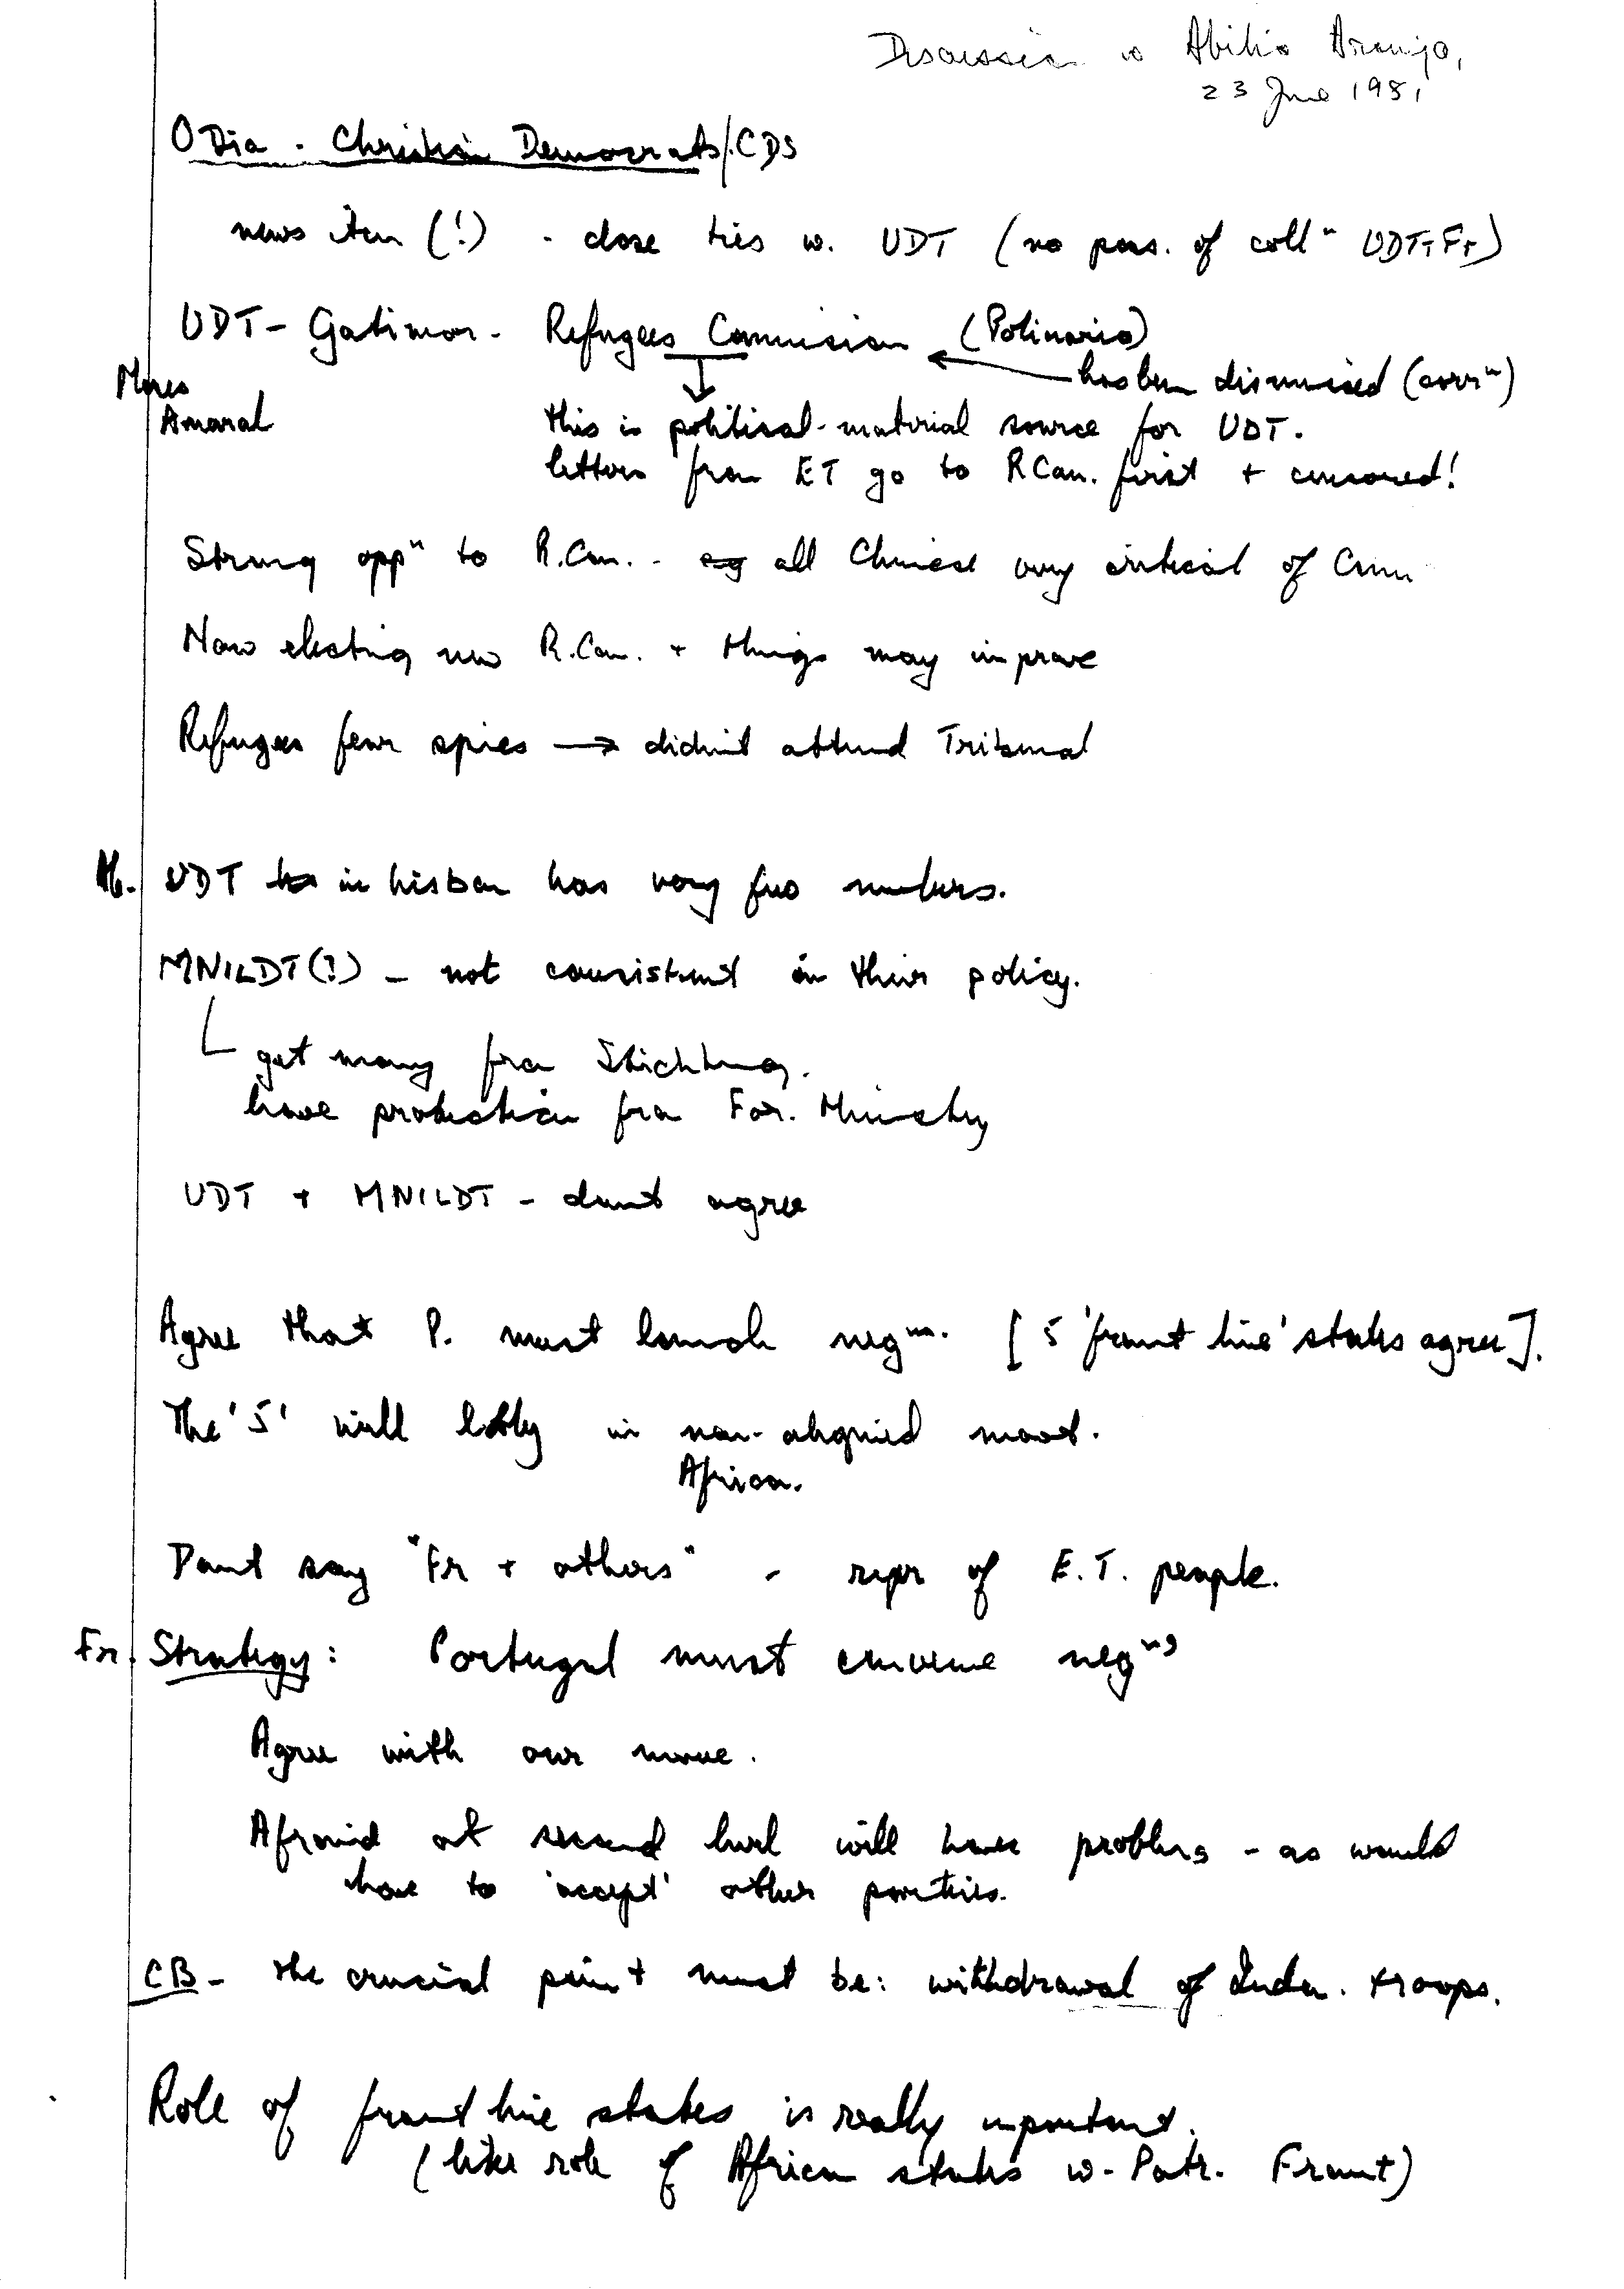 Discussion w Abilio Araujo,
23 June 1981
O Dia - Christian Democrats/CDS
news item (!) - close ties w. UDT (no poss. of collⁿ UDT + Fr)
UDT - Gatimor - Refugees Commission (Polinario)
has been dismissed (corrⁿ)
Amaral
this is political-material source for UDT.
letters from ET go to RCom. first + censored!
Strong oppⁿ to R.Com. - eg all Chinese very critical of Comm
Now electing new R.Com. + things may improve
Refugees fear spies → didn't attend Tribunal
Ab. UDT in Lisbon has very few numbers.
MNILDT(?) - not consistent in their policy.
get money from Stichting.
have protection from For. Ministry
UDT + MNILDT - dont agree
Agree that P. must launch negⁿˢ. [5 'front line' states agree].
The '5' will lobby in non-aligned movt.
Africa.
Dont say "Fr + others" - repr of E.T. people.
Fr. Strategy: Portugal must convene negⁿˢ
Agree with our move.
Afraid at second level will have problems - as would
have to 'accept' other parties.
CB - the crucial point must be: withdrawal of Indon. troops.
Role of front line states is really important.
(like role of African states w. Patr. Front)